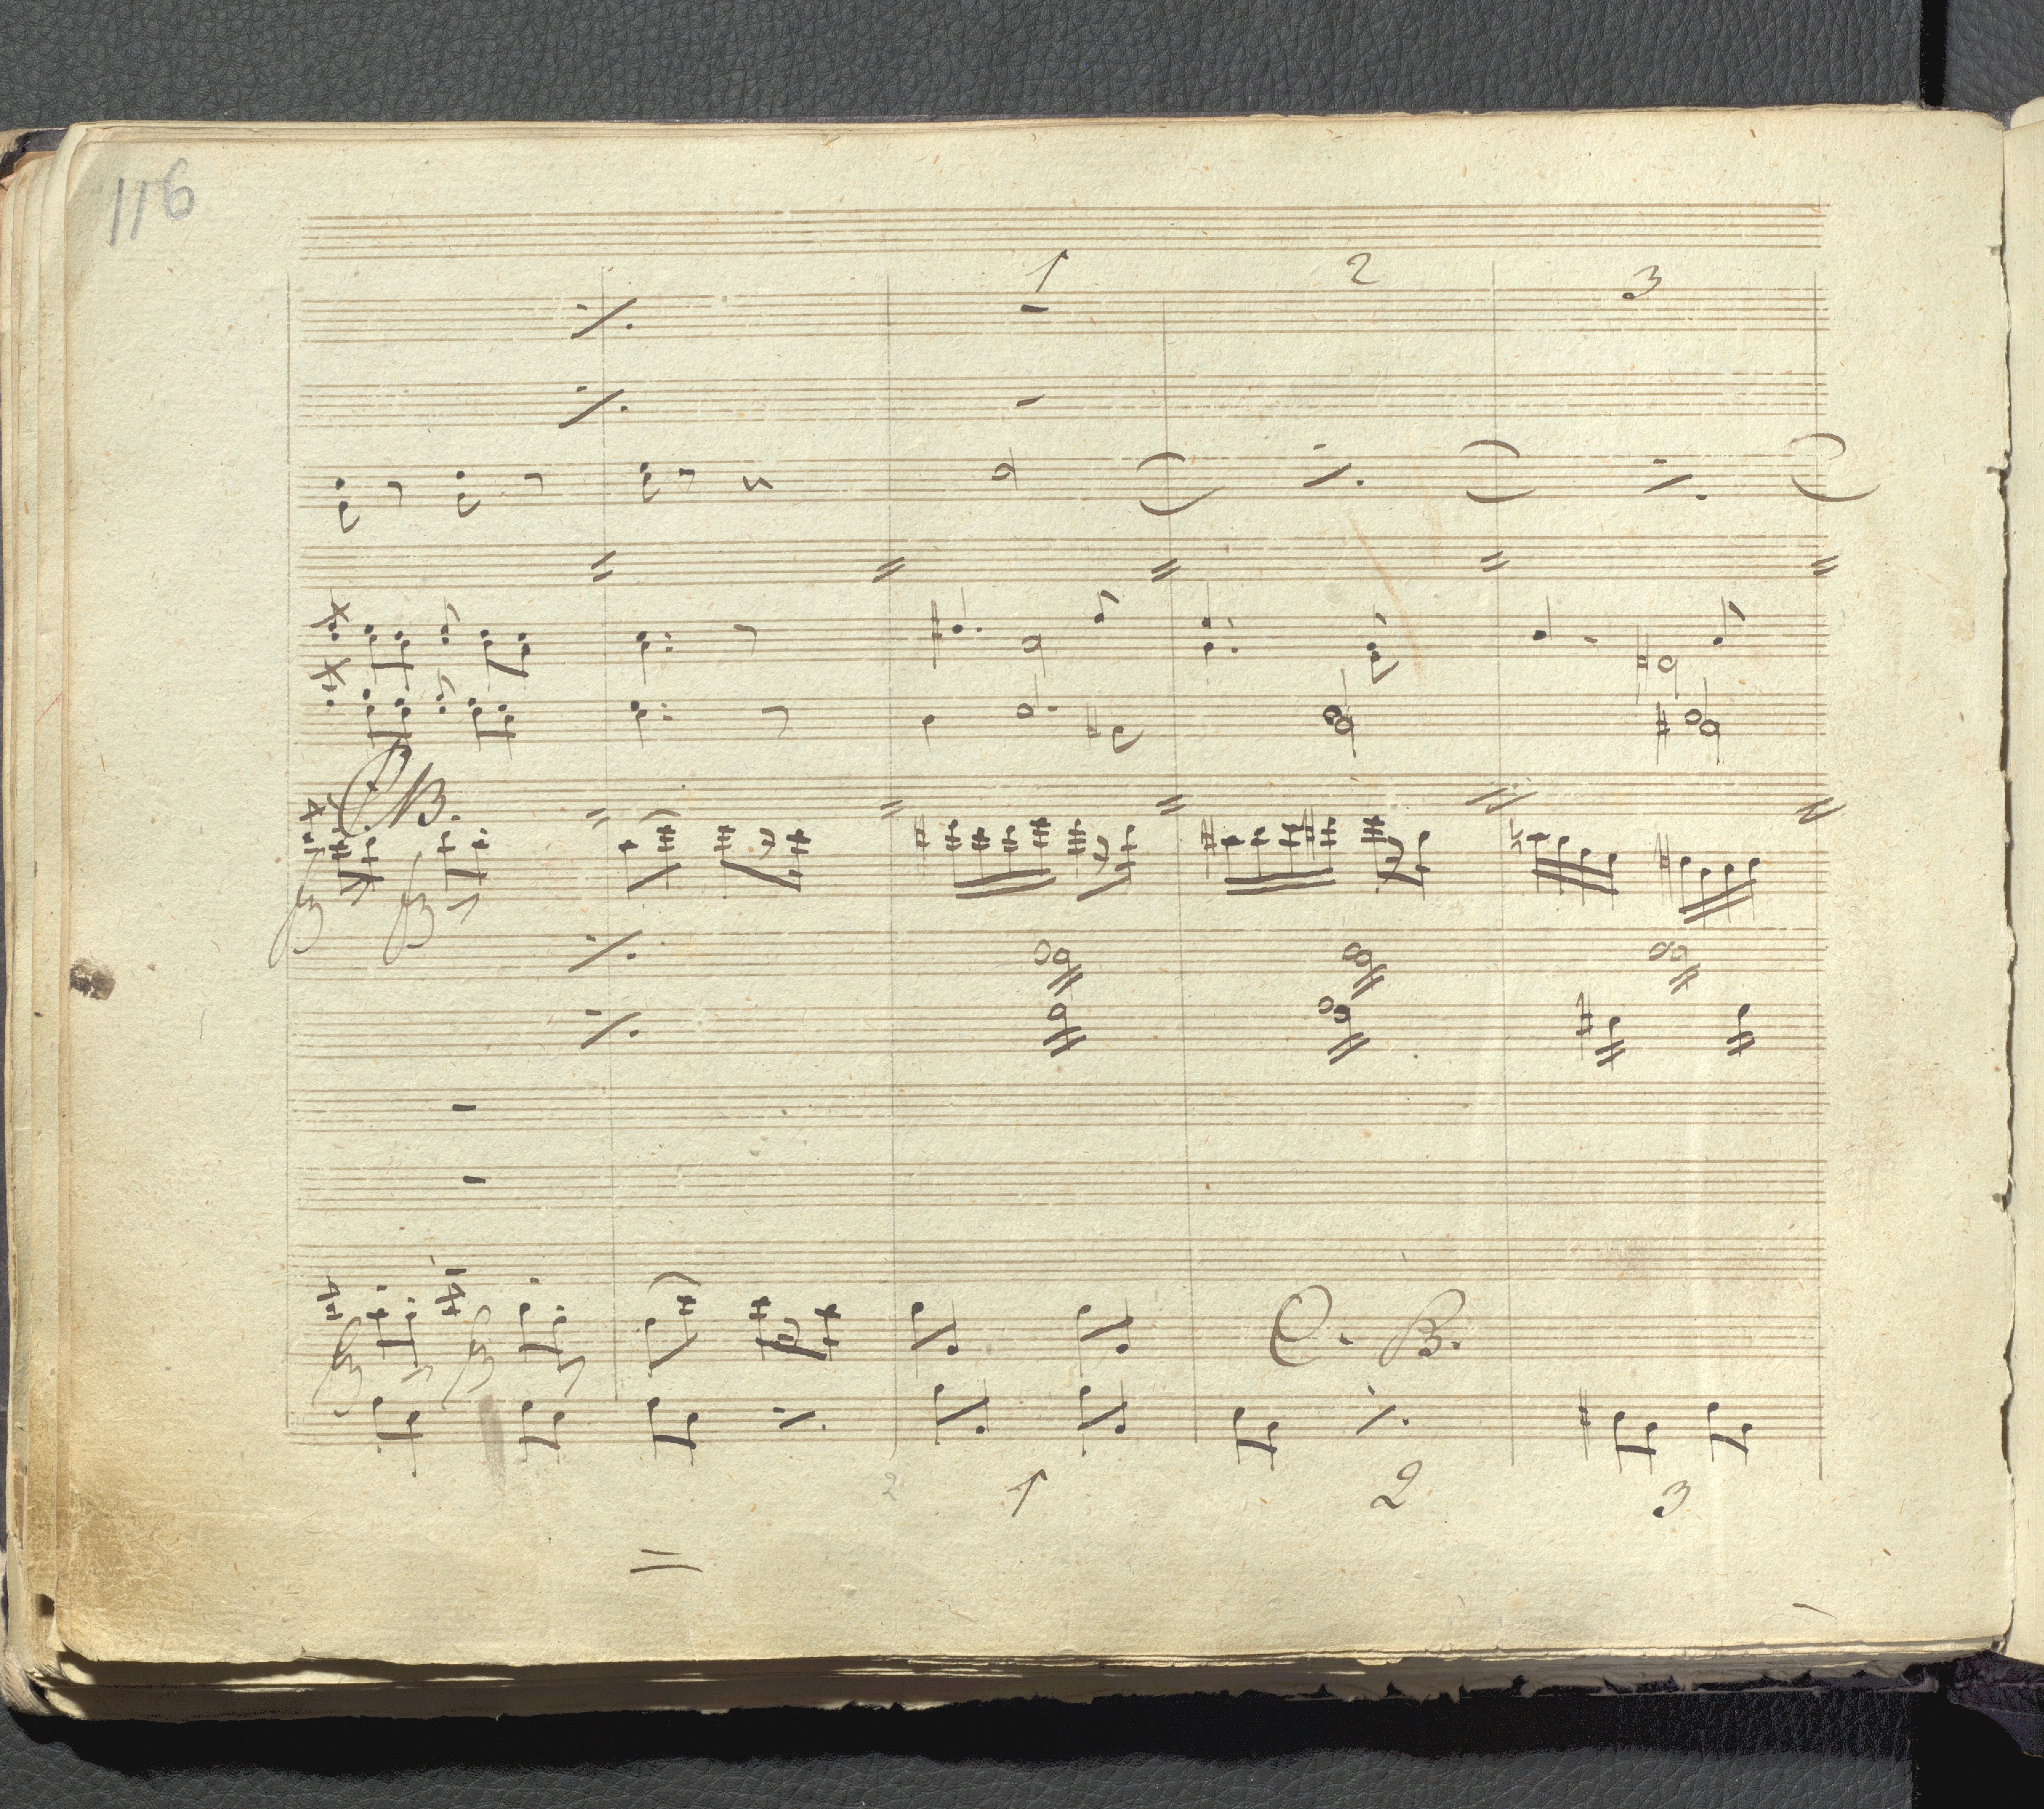 116
1 2 3
CB.
C. B.
2 1 2 3